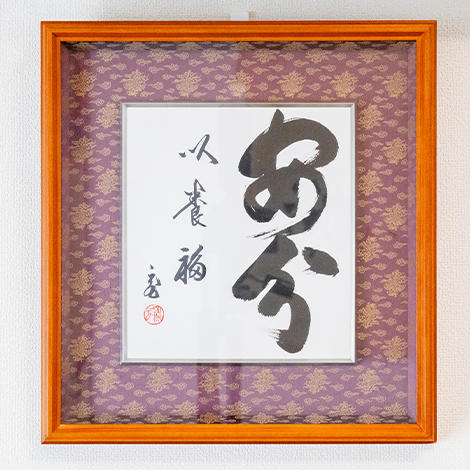 安分
以養福